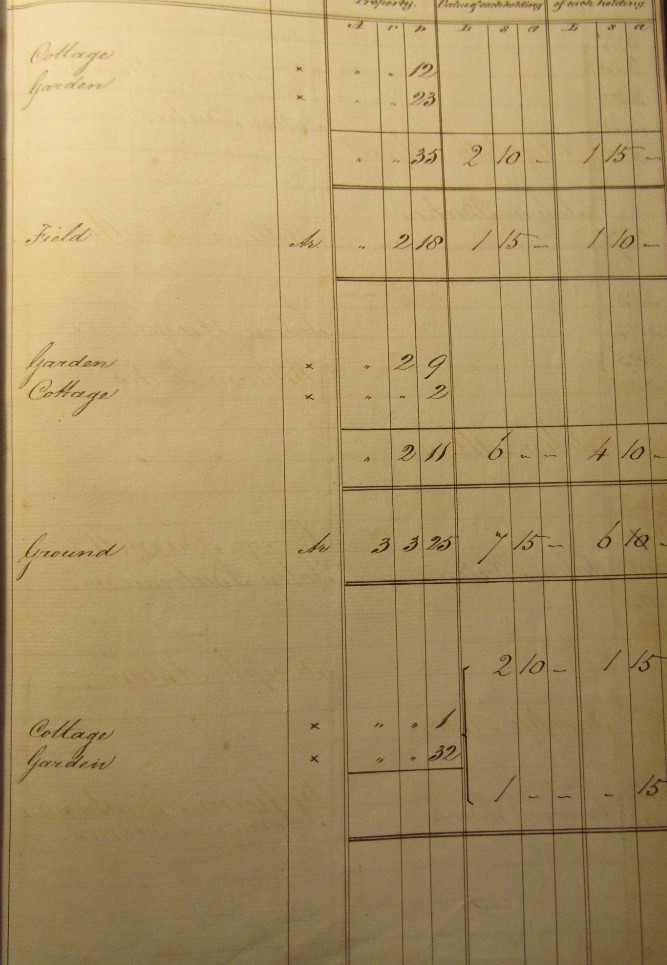 Property. Value of each holding of each holding
A r p L s d L s d
Cottage × " " 12
Garden × " " 23
" " 35 2 10 - 1 15 -
Field Ar. " 2 18 1 15 - 1 10 -
Garden × " 2 9
Cottage × " " 2
" 2 11 6 - - 4 10 -
Ground Ar 3 3 25 7 15 - 6 -
2 10 - 1 15
Cottage × " " 1
Garden × " " 32
1 - - - 15